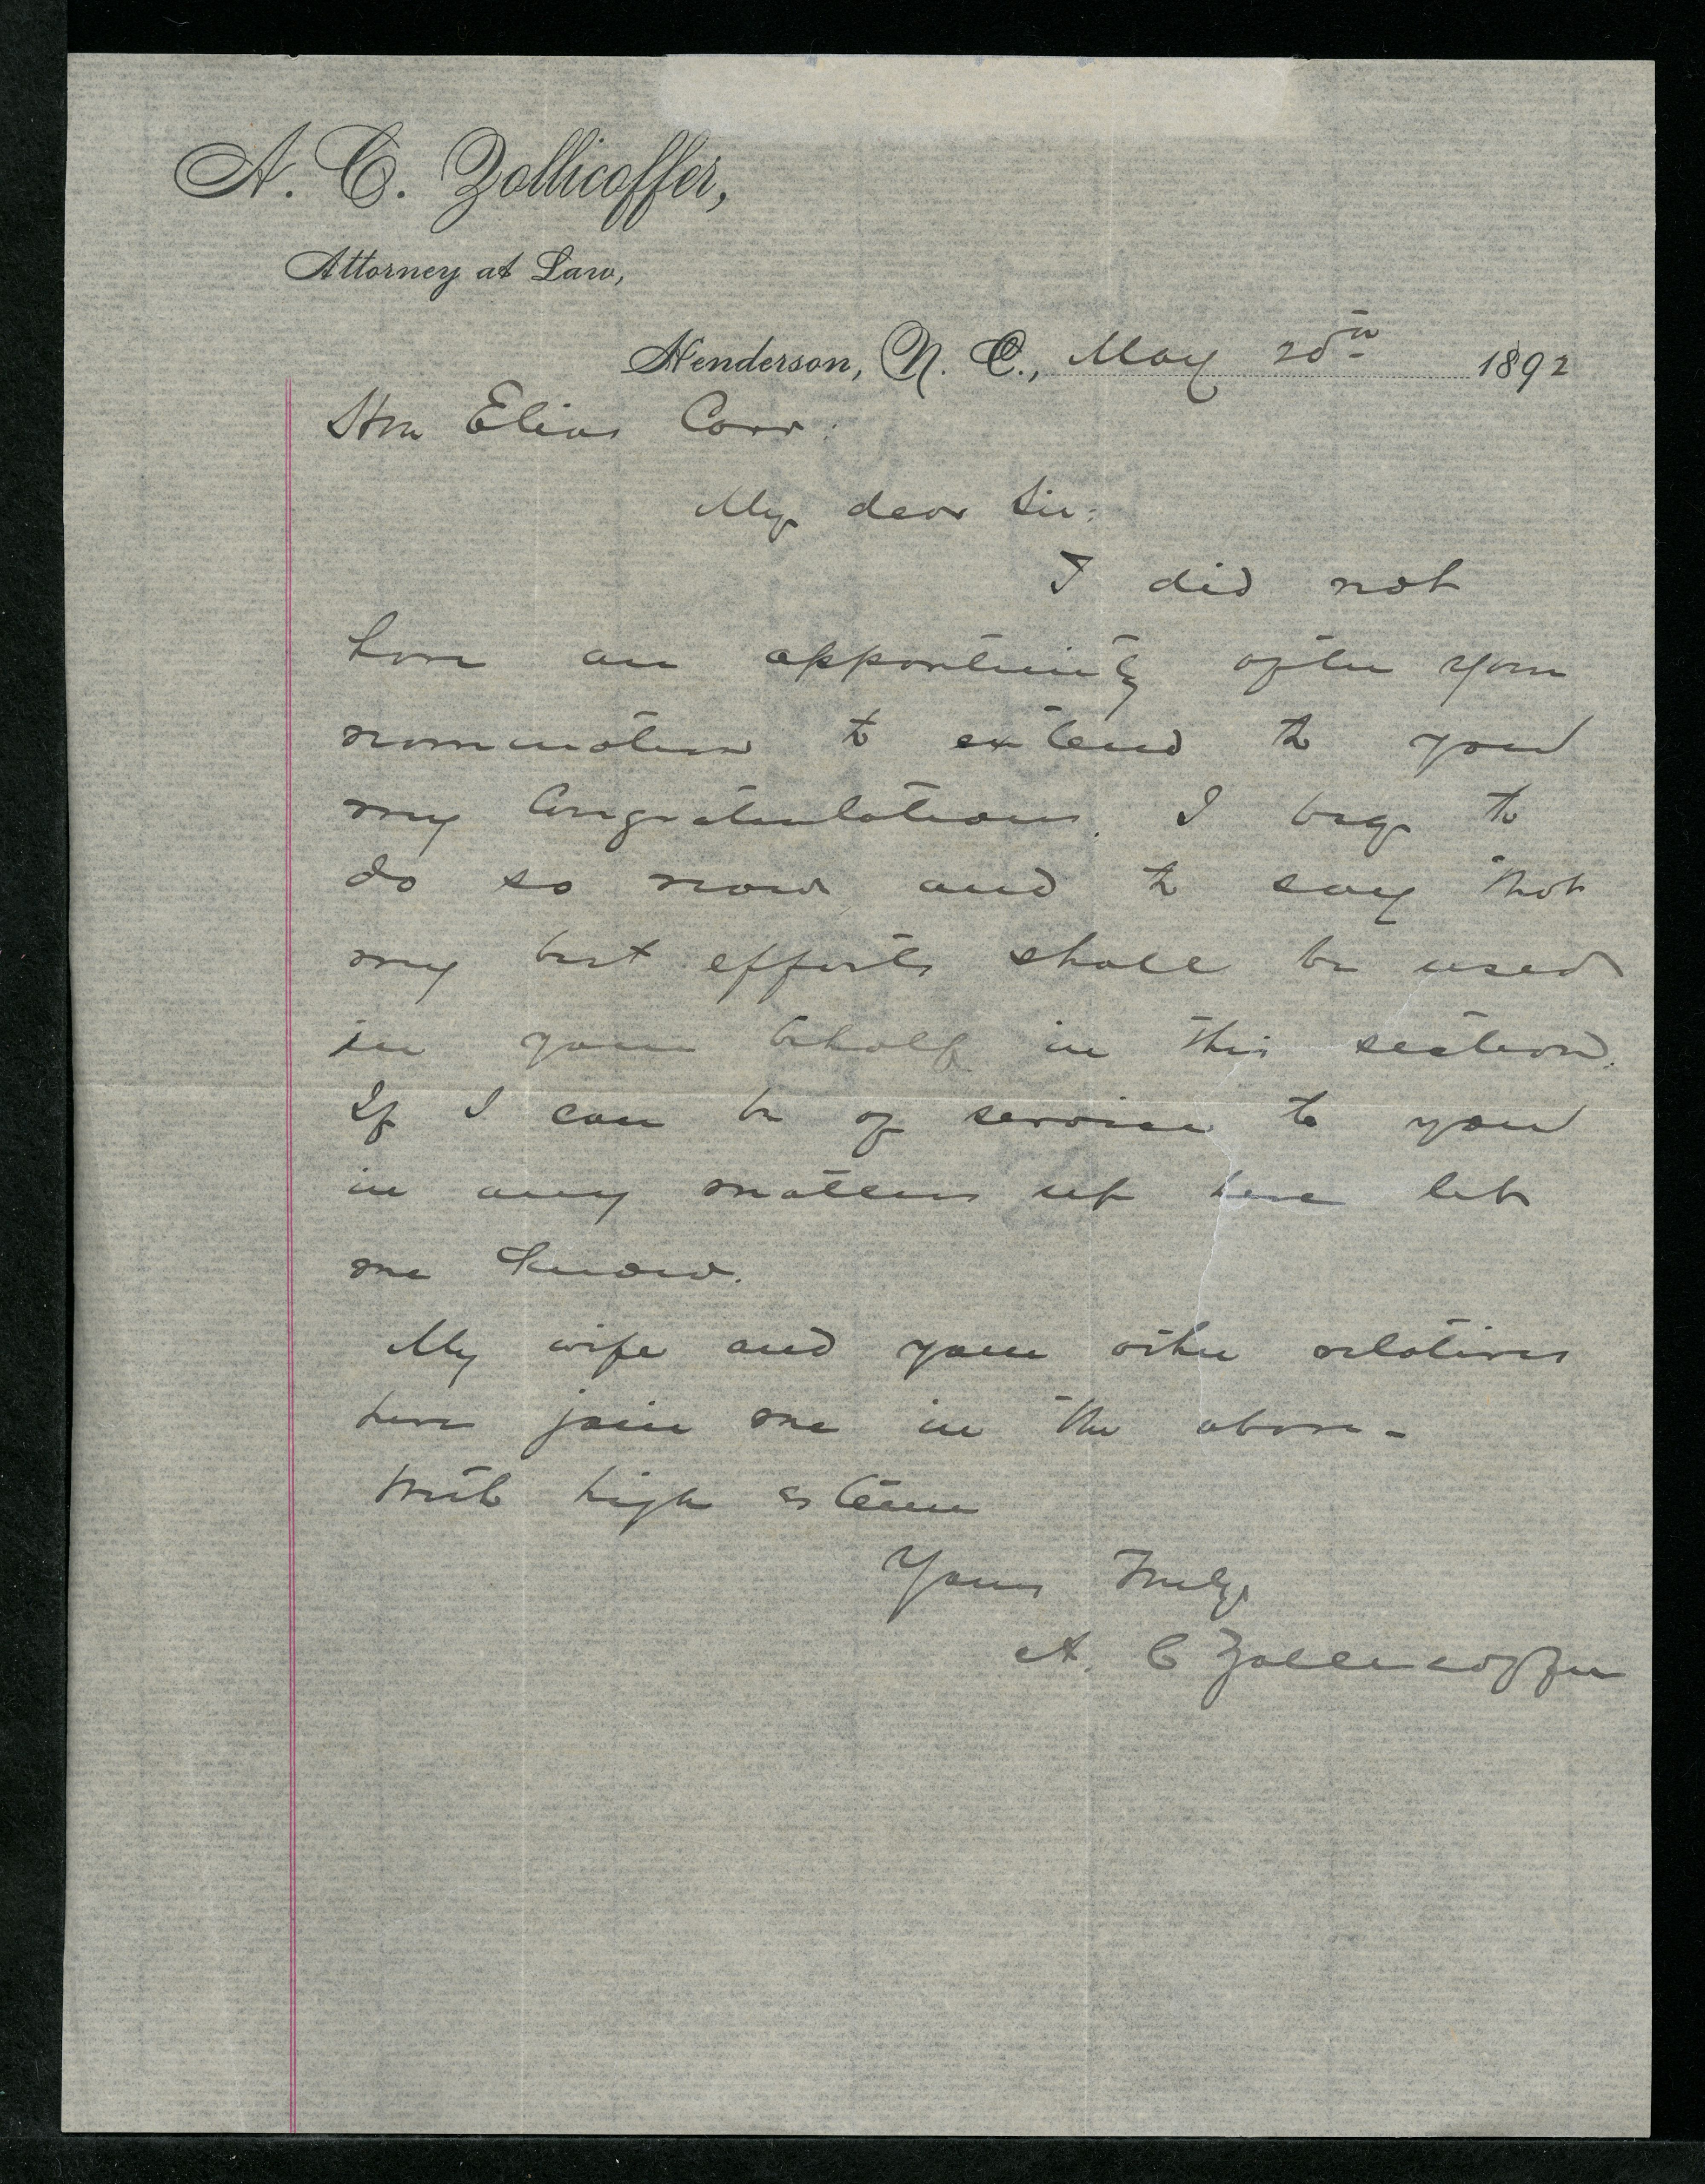 A. C. Zollicoffer,
Attorney at Law,
Henderson, N. C., May 20th 1892
Hon Elias Carr:
My dear Sir:
I did not
have an opportunity after your
nomination to extend to you
my Congratulations. I beg to
do so now and to say that
my best efforts shall be used
in your behalf in this section.
If I can be of service to you
in any matters up here let
me know.
My wife and your other relatives
here join me in the above-
With high esteem
Yours Truly
A. C Zollicoffer